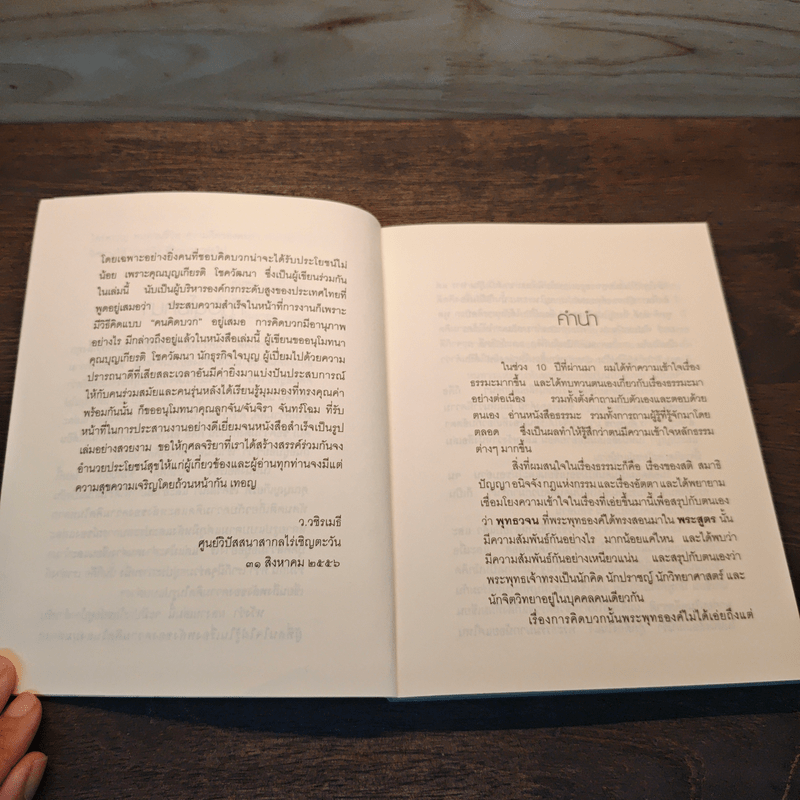 โดยเฉพาะอย่างยิ่งคนที่ชอบคิดบวกน่าจะได้รับประโยชน์ไม่
น้อย เพราะคุณบุญเกียรติ โชควัฒนา ซึ่งเป็นผู้เขียนร่วมกัน
ในเล่มนี้ นับเป็นผู้บริหารองค์กรระดับสูงของประเทศไทยที่
พูดอยู่เสมอว่า ประสบความสำเร็จในหน้าที่การงานก็เพราะ
มีวิธีคิดแบบ "คนคิดบวก" อยู่เสมอ การคิดบวกมีอานุภาพ
อย่างไร มีกล่าวถึงอยู่แล้วในหนังสือเล่มนี้ ผู้เขียนขออนุโมทนา
คุณบุญเกียรติ โชควัฒนา นักธุรกิจใจบุญ ผู้เปี่ยมไปด้วยความ
ปรารถนาดีที่เสียสละเวลาอันมีค่ายิ่งมาแบ่งปันประสบการณ์
ให้กับคนร่วมสมัยและคนรุ่นหลังได้เรียนรู้มุมมองที่ทรงคุณค่า
พร้อมกันนั้น ก็ขออนุโมทนาคุณลูกจัน/จันจิรา จันทร์โฉม ที่รับ
หน้าที่ในการประสานงานอย่างดีเยี่ยมจนหนังสือสำเร็จเป็นรูป
เล่มอย่างสวยงาม ขอให้กุศลจริยาที่เราได้สร้างสรรค์ร่วมกันจง
อำนวยประโยชน์สุขให้แก่ผู้เกี่ยวข้องและผู้อ่านทุกท่านจงมีแต่
ความสุขความเจริญโดยถ้วนหน้ากัน เทอญ
ว.วชิรเมธี
ศูนย์วิปัสสนาสากลไร่เชิญตะวัน
๓๑ สิงหาคม ๒๕๕๖
คำนำ
ในช่วง 10 ปีที่ผ่านมา ผมได้ทำความเข้าใจเรื่อง
ธรรมะมากขึ้น และได้ทบทวนตนเองเกี่ยวกับเรื่องธรรมะมา
อย่างต่อเนื่อง รวมทั้งตั้งคำถามกับตัวเองและตอบด้วย
ตนเอง อ่านหนังสือธรรมะ รวมทั้งการถามผู้รู้ที่รู้จักมาโดย
ตลอด ซึ่งเป็นผลทำให้รู้สึกว่าตนมีความเข้าใจหลักธรรม
ต่างๆ มากขึ้น
สิ่งที่ผมสนใจในเรื่องธรรมะก็คือ เรื่องของสติ สมาธิ
ปัญญา อนิจจัง กฎแห่งกรรม และเรื่องอัตตา และได้พยายาม
เชื่อมโยงความเข้าใจในเรื่องที่เอ่ยขึ้นมานี้เพื่อสรุปกับตนเอง
ว่า พุทธวจน ที่พระพุทธองค์ได้ทรงสอนมาใน พระสูตร นั้น
มีความสัมพันธ์กันอย่างไร มากน้อยแค่ไหน และได้พบว่า
มีความสัมพันธ์กันอย่างเหนียวแน่น และสรุปกับตนเองว่า
พระพุทธเจ้าทรงเป็นนักคิด นักปราชญ์ นักวิทยาศาสตร์ และ
นักจิตวิทยาอยู่ในบุคคลคนเดียวกัน
เรื่องการคิดบวกนั้นพระพุทธองค์ไม่ได้เอ่ยถึงแต่